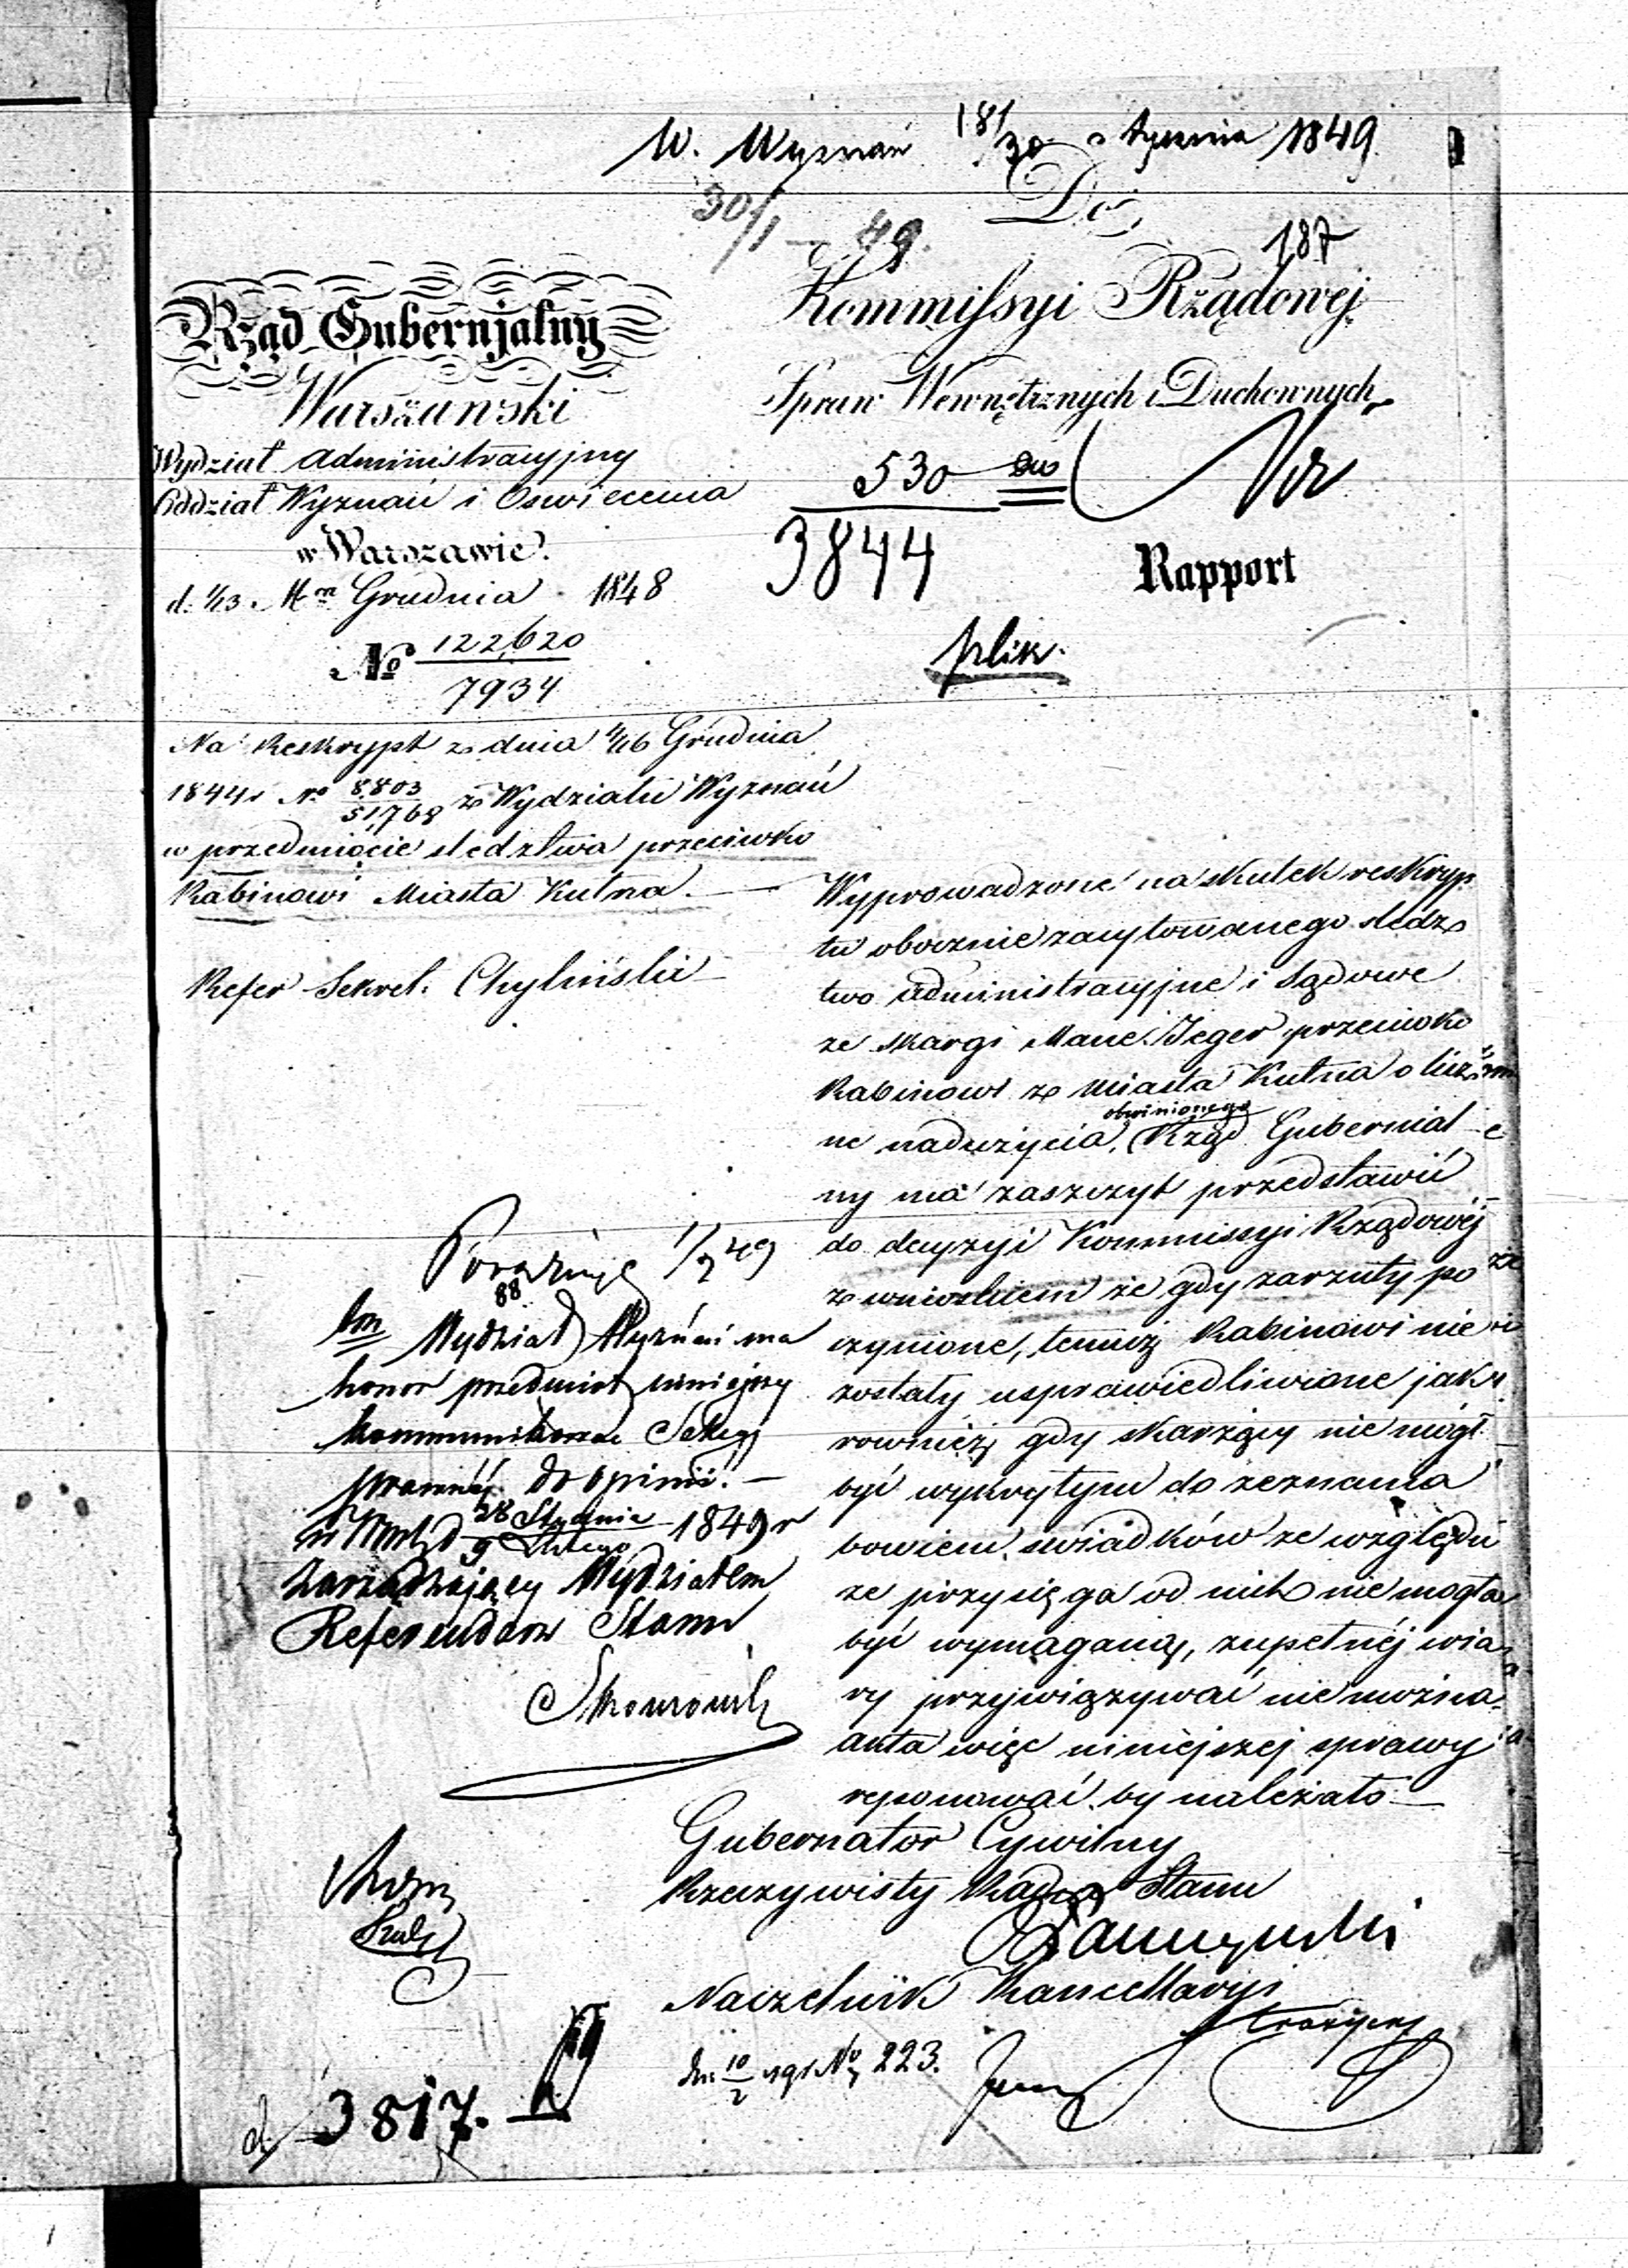 W. Wyznań 18/30 stycznia 1849
30/1 49.
Do
187
Kommissyi Rządowej
Spraw Wewnętrznych i Duchownych
Rząd Gubernjalny
Warszawski
Wydział Administracyjny
Oddział Wyznań i Oswiecenia
w Warszawie.
d. 1/13 Grudnia 1848
№ 122,620
7934
530
3844
Rapport
plik.
Na Reskrypt z dnia 4/16 Grudnia
1844 r № 8.803
51,768 z Wydziału Wyznań
w przedmiocie sledztwa przeciwko
Rabinowi Miasta Kutna.
Refer Sekret. Chyliński
Wyprowadzone na skutek reskryp
tu obocznie zacytowanego sledz
two administracyjne i Sądowe
ze skargi Mane Jeger przeciwko
Rabinowi z Miasta Kutna o licz
obwinionego
ne nadużycia, Rząd Gubernial
ny ma zaszczyt przedstawić
do decyzyi Kommissyi Rządowéj
z wnioskiem że gdy zarzuty po
czynione, temuż Rabinowi nie
zostały usprawiedliwione jak
rownież gdy skarżący nie mógł
być wykrytym do zeznania
bowiem swiadków ze względu
że przysięga od nich nie mogła
być wymaganą, zupełnéj wia
ry przywiązywać nie można,
akta więc niniejszej sprawy
reponować by należało
Gubernator Cywilny
Rzeczywisty Radca Stanu
Naczelnik Kancellaryi
1/2 49
88
Wydział Wyznań ma
honor przedmiot niniejszy
kommunikować Sekcyi
prawnéj do opinii.
28 Stycznia
9 Lutego 1849 r
Zarządzający Wydziałem
Referendarz Stanu
10/2 № 223.
3817.